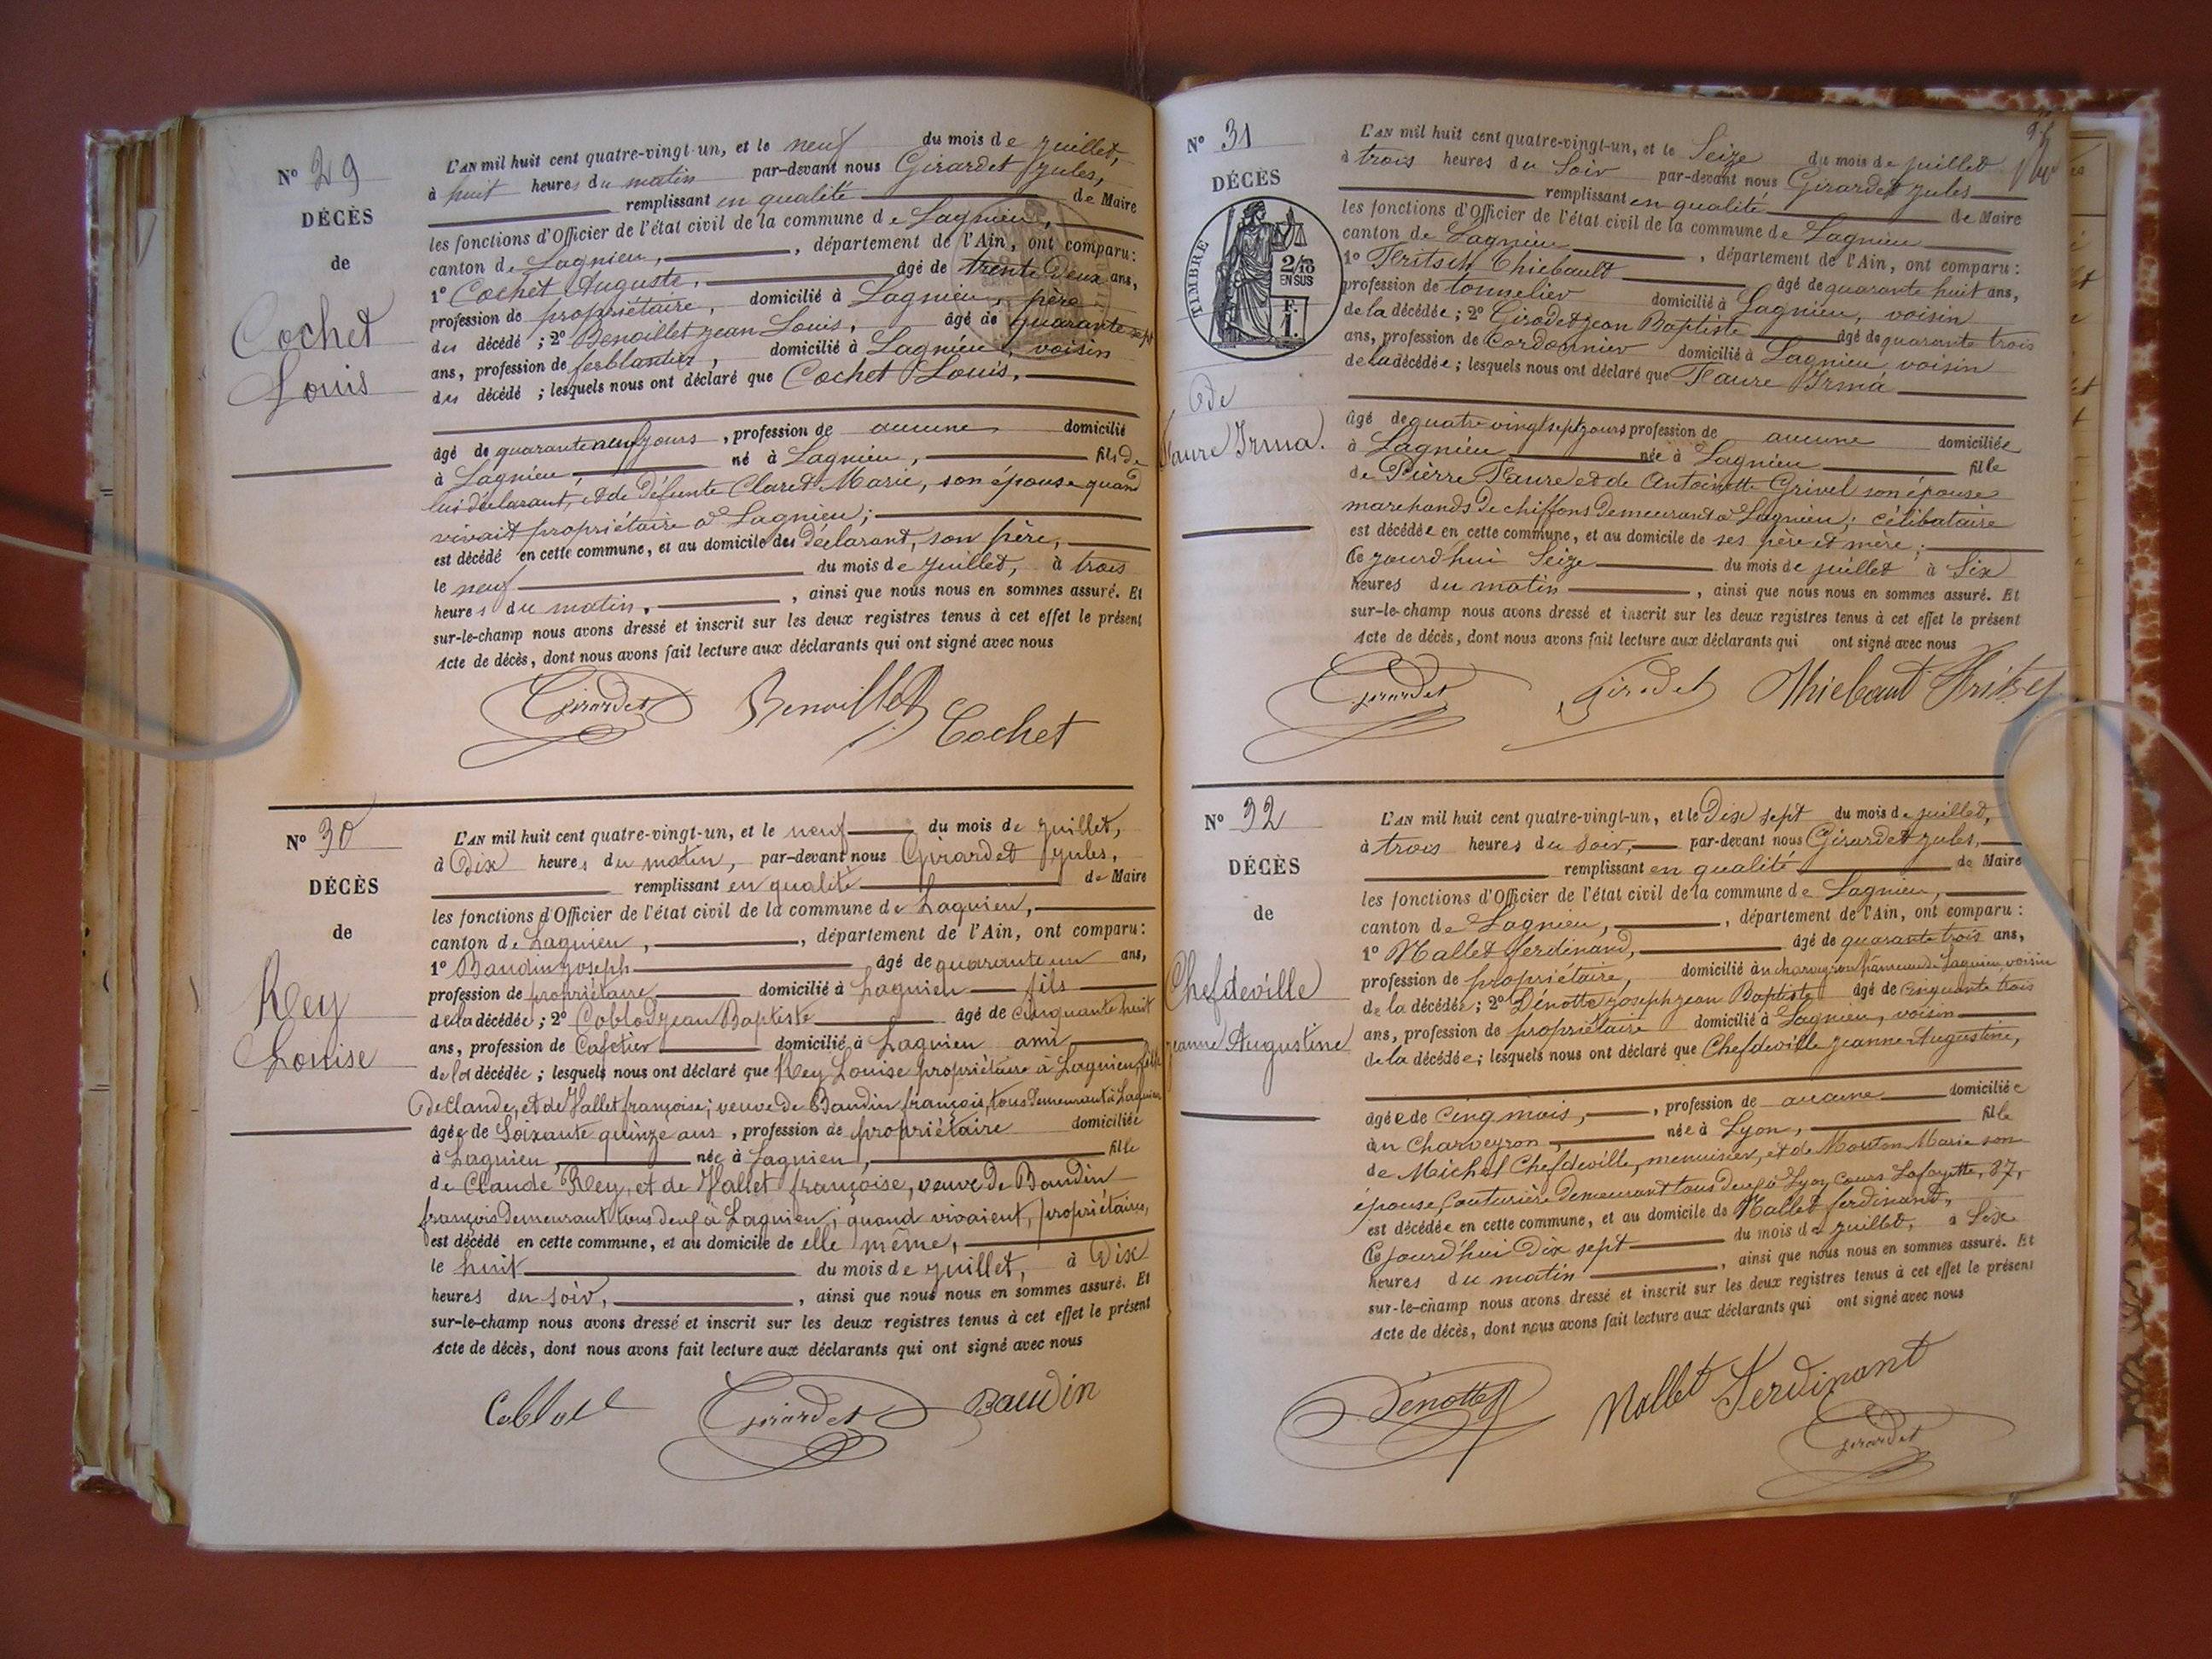 N° 29
DÉCÈS
de
Cochet
Louis
L'AN mil huit cent quatre-vingt-un, et le neuf du mois de juillet,
à huit heures du matin par-devant nous Girardet Jules,
remplissant en qualité de Maire
les fonctions d'Officier de l'état civil de la commune de Lagnieu,
canton de Lagnieu, , département de l'Ain, ont comparu:
1° Cochet Auguste, âgé de trente deux ans,
profession de propriétaire, domicilié à Lagnieu, père
du décédé ; 2° Benoillet Jean Louis, âgé de quarante sept
ans, profession de ferblantier, domicilié à Lagnieu, voisin
du décédé ; lesquels nous ont déclaré que Cochet Louis,
âgé de quarante neuf jours , profession de aucune domicilié
à Lagnieu, né à Lagnieu, fils de
lui déclarant, et de défunte Claret Marie, son épouse quand
vivait propriétaire à Lagnieu;
est décédé en cette commune, et au domicile du déclarant, son père,
le neuf du mois de juillet, à trois
heures du matin, , ainsi que nous nous en sommes assuré. Et
sur-le-champ nous avons dressé et inscrit sur les deux registres tenus à cet effet le présent
Acte de décès, dont nous avons fait lecture aux déclarants qui ont signé avec nous
Girardet Benoillet Cochet
N° 30
DÉCÈS
de
Rey
Louise
L'AN mil huit cent quatre-vingt-un, et le neuf du mois de juillet,
à Dix heures du matin, par-devant nous Girardet Jules,
remplissant en qualité de Maire
les fonctions d'Officier de l'état civil de la commune de Lagnieu,
canton de Lagnieu , , département de l'Ain, ont comparu:
1° Baudin Joseph âgé de quarante un ans,
profession de propriétaire domicilié à Lagnieu fils
de la décédée ; 2° Coblod Jean Baptiste âgé de cinquante huit
ans, profession de Cafetier domicilié à Lagnieu ami
de la décédée ; lesquels nous ont déclaré que Rey Louise propriétaire à Lagnieu, fille
de Claude, et de Vallet françoise; veuve de Baudin françois, tous demeurant à Lagnieu
âgée de Soixante quinze ans , profession de propriétaire domiciliée
à Lagnieu , née à Lagnieu , fille
de Claude Rey, et de Vallet françoise, veuve de Baudin
françois demeurant tous deux à Lagnieu; quand vivaient, propriétaires,
est décédé en cette commune, et au domicile de elle même,
le huit du mois de juillet, à Dix
heures du soir, , ainsi que nous nous en sommes assuré. Et
sur-le-champ nous avons dressé et inscrit sur les deux registres tenus à cet effet le présent
Acte de décès, dont nous avons fait lecture aux déclarants qui ont signé avec nous
Coblod Girardet Baudin
N° 31
DÉCÈS
TIMBRE
2/10
EN SUS
F.
1.
de
Faure Irma.
L'AN mil huit cent quatre-vingt-un, et le Seize du mois de juillet
à trois heures du Soir par-devant nous Girardet Jules
remplissant en qualité de Maire
les fonctions d'Officier de l'état civil de la commune de Lagnieu
canton de Lagnieu , département de l'Ain, ont comparu:
1° Fritsch Thiebault âgé de quarante huit ans,
profession de tonnelier domicilié à Lagnieu, voisin
de la décédée ; 2° Girodet Jean Baptiste âgé de quarante trois
ans, profession de Cordonnier domicilié à Lagnieu voisin
de la décédée ; lesquels nous ont déclaré que Faure Irma
âgé de quatre vingt sept jours profession de aucune domiciliée
à Lagnieu née à Lagnieu fille
de Pierre Faure et de Antoinette Grivel son épouse
marchands de chiffons demeurant à Lagnieu; célibataire
est décédée en cette commune, et au domicile de ses père et mère;
Ce jourd'hui Seize du mois de juillet à Six
heures du matin , ainsi que nous nous en sommes assuré. Et
sur-le-champ nous avons dressé et inscrit sur les deux registres tenus à cet effet le présent
Acte de décès, dont nous avons fait lecture aux déclarants qui ont signé avec nous
Girardet Girodet Thiebaut
N° 32
DÉCÈS
de
Chefdeville
Jeanne Augustine
L'AN mil huit cent quatre-vingt-un, et le Dix sept du mois de juillet,
à trois heures du soir, par-devant nous Girardet Jules,
remplissant en qualité de Maire
les fonctions d'Officier de l'état civil de la commune de Lagnieu,
canton de Lagnieu, , département de l'Ain, ont comparu:
1° Mallet ferdinand, âgé de quarante trois ans,
profession de propriétaire, domicilié à u charveyron hameau de Lagnieu, voisin
de la décédée; 2° Dénotte Joseph Jean Baptiste âgé de cinquante trois
ans, profession de propriétaire domicilié à Lagnieu, voisin
de la décédée; lesquels nous ont déclaré que Chefdeville Jeanne Augustine,
âgée de cinq mois, , profession de aucune domiciliée
à u Charveyron, née à Lyon, fille
de Michel Chefdeville, menuisier, et de Mouton Marie son
épouse Couturière demeurant tous deux à Lyon Cours Lafayette, 87,
est décédée en cette commune, et au domicile de Mallet ferdinand,
Ce jourd'hui Dix sept du mois de juillet, à Six
heures du matin , ainsi que nous nous en sommes assuré. Et
sur-le-champ nous avons dressé et inscrit sur les deux registres tenus à cet effet le présent
Acte de décès, dont nous avons fait lecture aux déclarants qui ont signé avec nous
Dénotte Mallet Ferdinant
Girardet